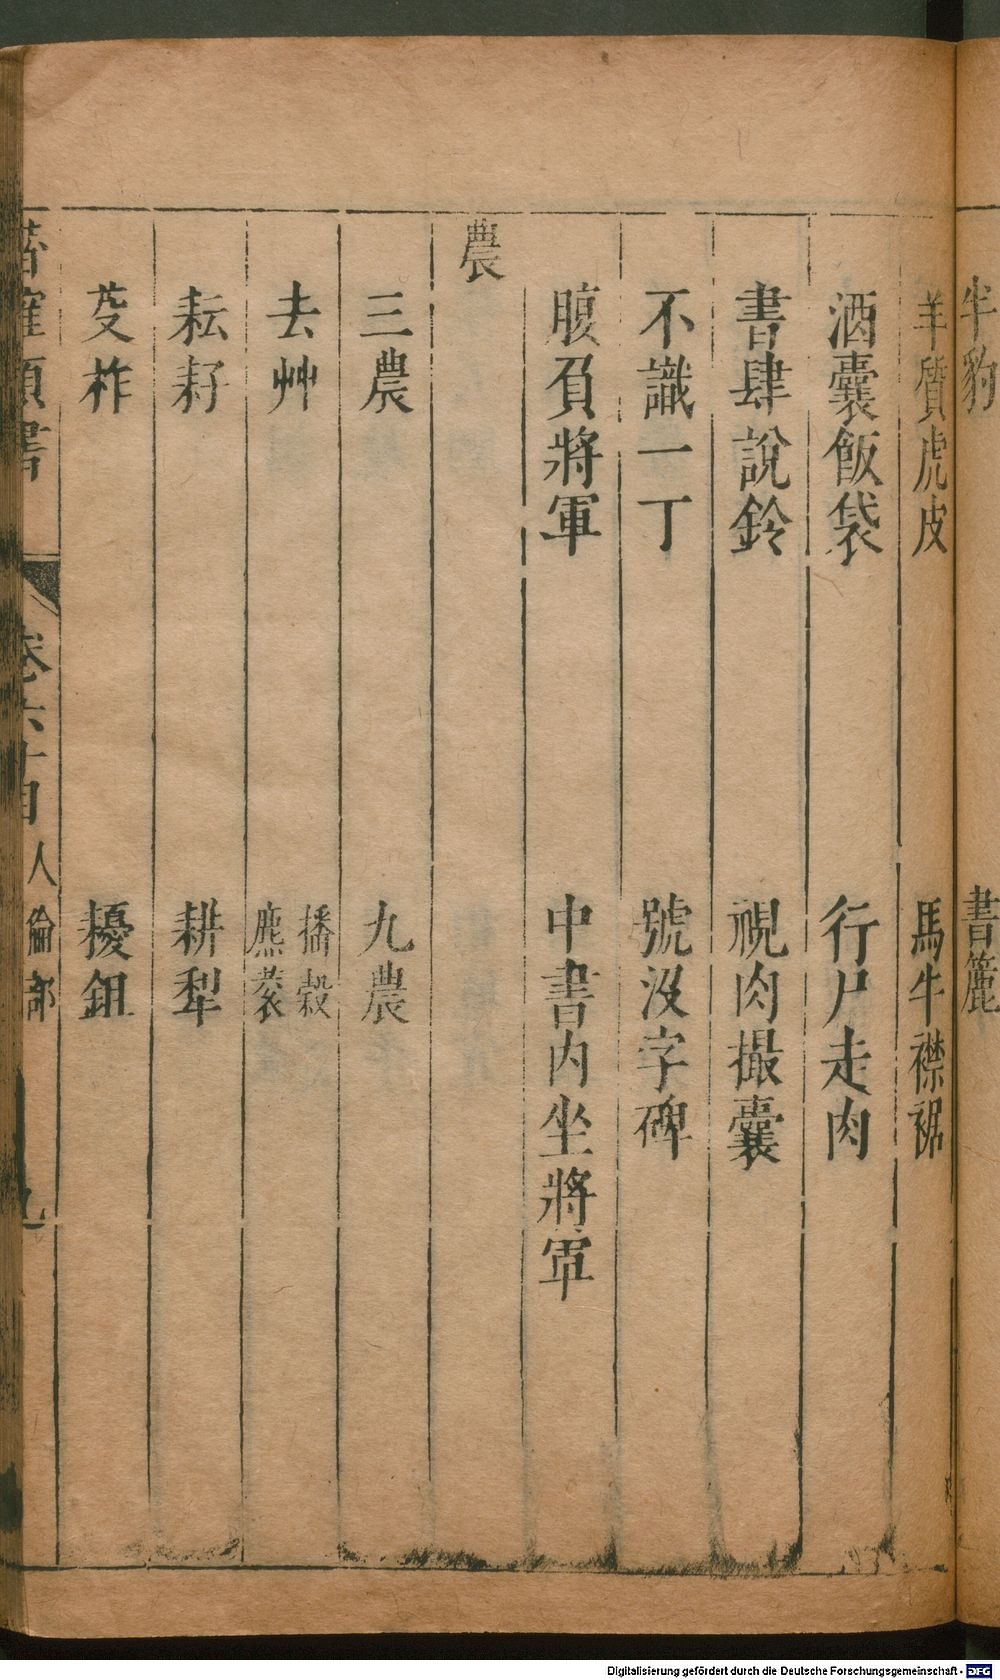 半豹 書簏
羊質虎皮 馬牛襟裾
酒囊飯袋 行尸走肉
書肆說鈴 視肉撮囊
不識一丁 號沒字碑
腹負將軍 中書內坐將軍
農
三農 九農
去艸 播穀 藨蔉
耘耔 耕犁
芟柞 耰鉏
卷六目 人倫部
Digitalisierung gefördert durch die Deutsche Forschungsgemeinschaft - DFG